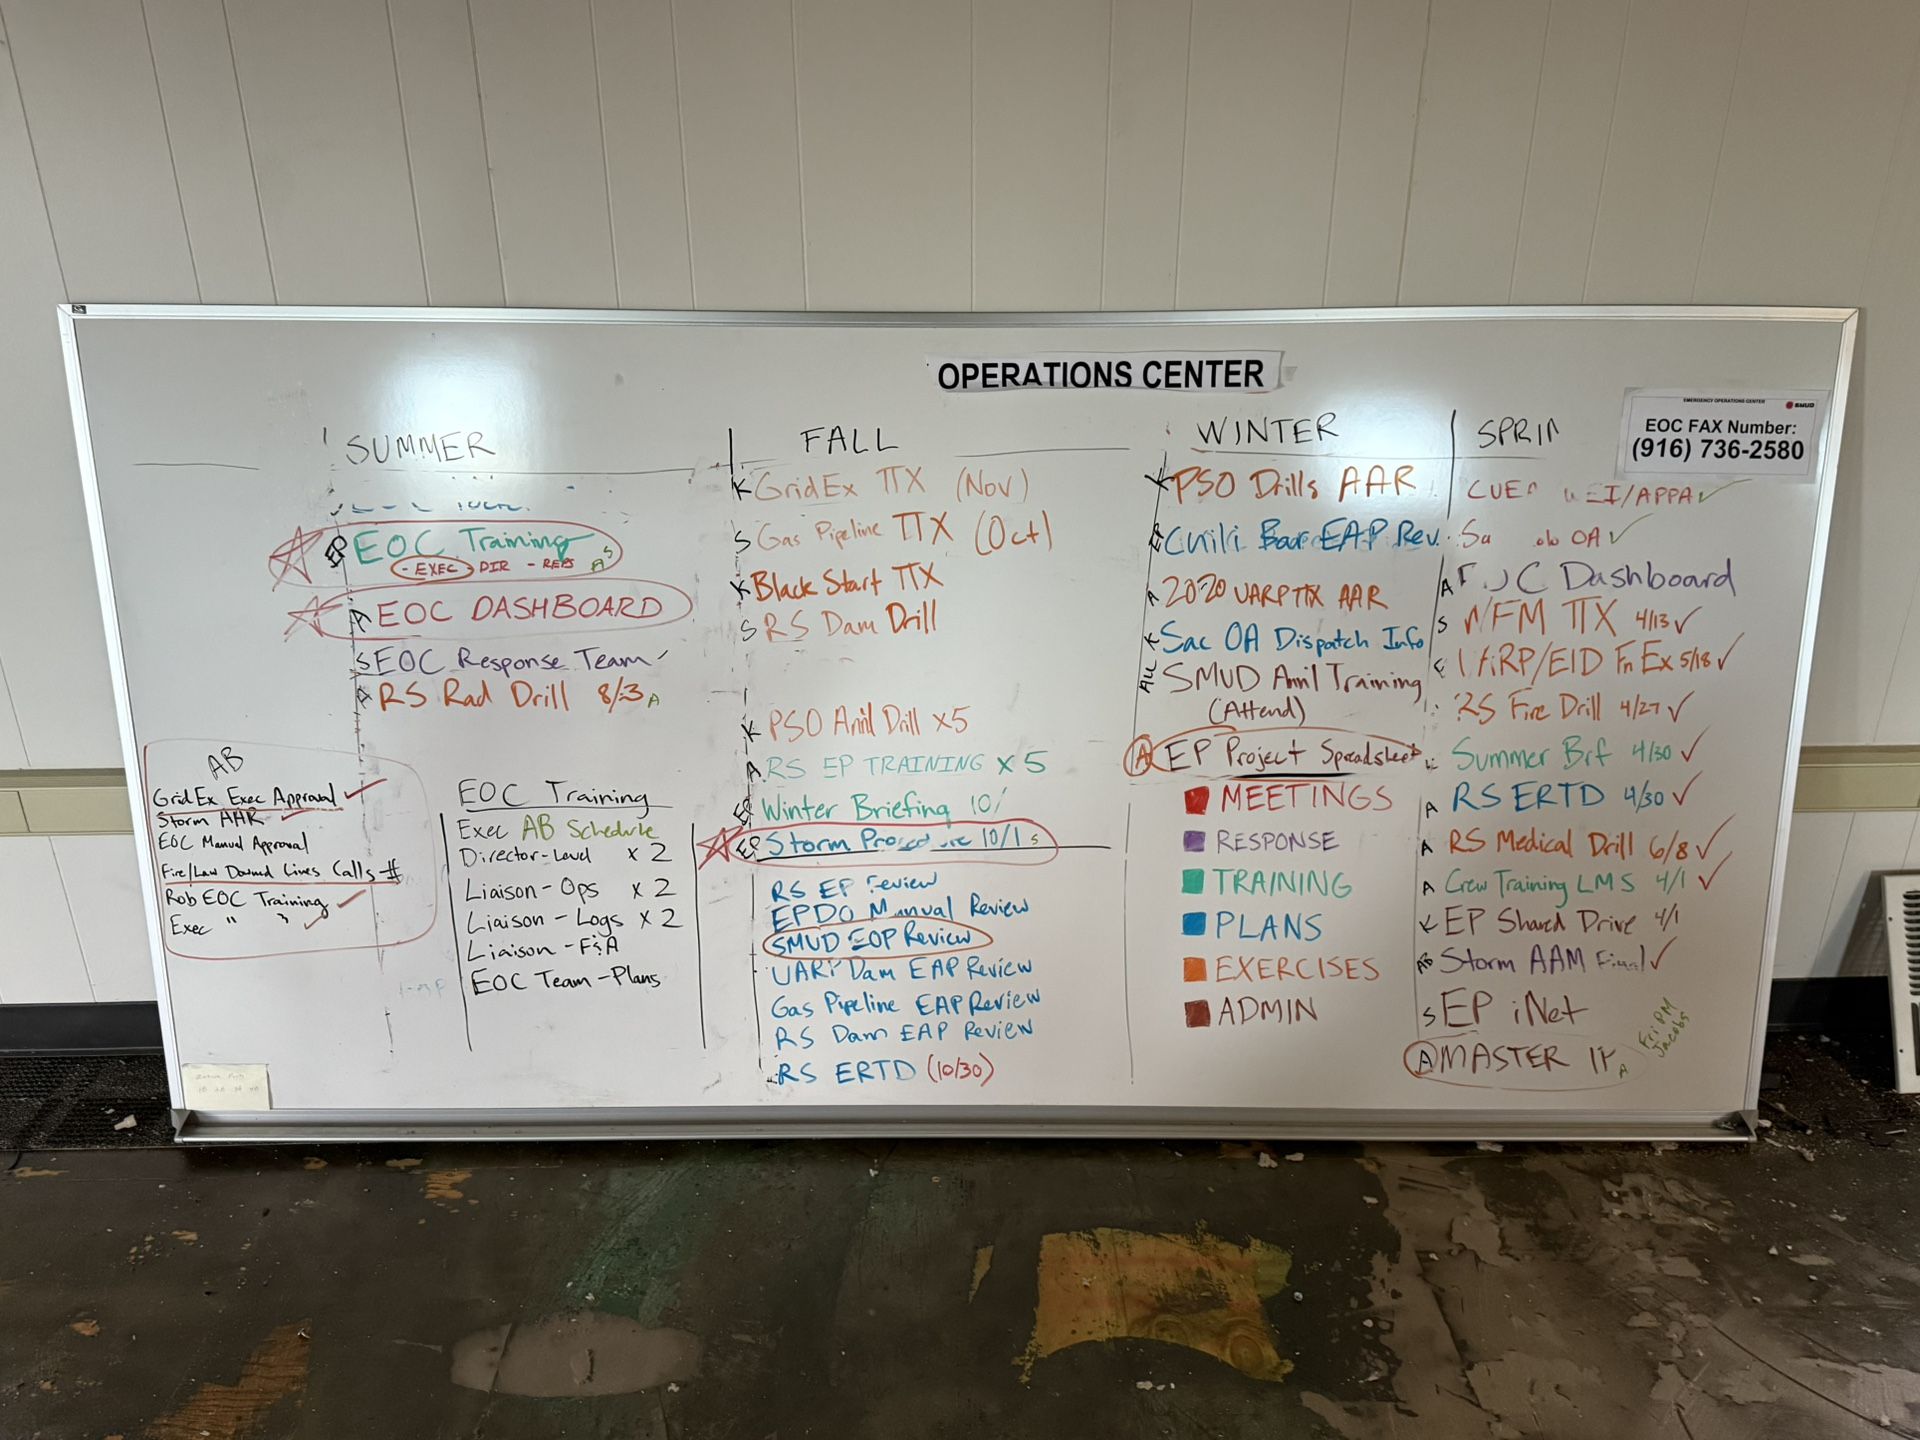 OPERATIONS CENTER
EMERGENCY OPERATIONS CENTER
SMUD
EOC FAX Number:
(916) 736-2580
SUMMER
EP EOC Training
- EXEC DIR - REPS A S
A EOC DASHBOARD
S EOC Response Team
A RS Rad Drill 8/3 A
AB
GridEx Exec Approval ✓
Storm AAR ✓
EOC Manual Approval
Fire/Law Downed Lines Calls #
Rob EOC Training ✓
Exec " " ✓
EOC Training
Exec AB Schedule
Director-Level x 2
Liaison-Ops x 2
Liaison-Logs x 2
Liaison-F&A
EOC Team-Plans
FALL
K GridEx TTX (Nov)
S Gas Pipeline TTX (Oct)
K Black Start TTX
S RS Dam Drill
K PSO Annl Drill x5
A RS EP TRAINING x 5
EP Winter Briefing 10/
EP Storm Procedure 10/1 S
RS EP Review
EPDO Manual Review
SMUD EOP Review
UARP Dam EAP Review
Gas Pipeline EAP Review
RS Dam EAP Review
RS ERTD (10/30)
WINTER
K PSO Drills AAR
EP Chili Bar EAP Rev.
A 2020 UARP TTX AAR
K Sac OA Dispatch Info
ALL SMUD Annl Training
(Attend)
A EP Project Spreadsheet
MEETINGS
RESPONSE
TRAINING
PLANS
EXERCISES
ADMIN
SPRIN
/APPA ✓
OA ✓
A EOC Dashboard
S WFM TTX 4/13 ✓
E UARP/EID Fn Ex 5/18 ✓
RS Fire Drill 4/27 ✓
Summer Brf 4/30 ✓
A RS ERTD 4/30 ✓
A RS Medical Drill 6/8 ✓
A Crew Training LMS 4/1 ✓
K EP Shared Drive 4/1
AB Storm AAM Final ✓
S EP iNet
A MASTER A
Fri PM
Jacobs